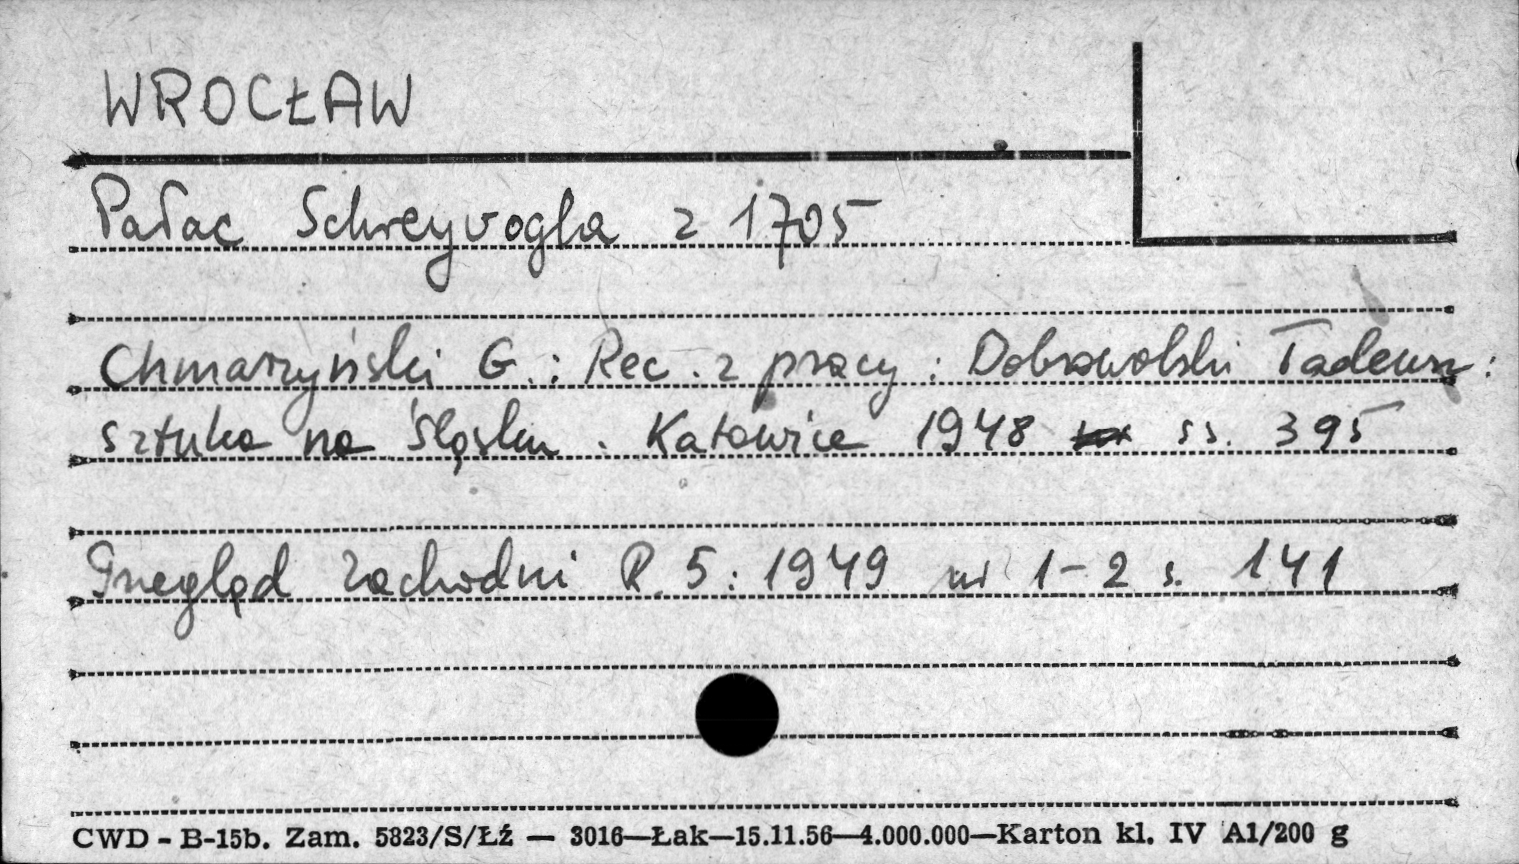 WROCŁAW
Pałac Schreyvogla z 1705
Chmarzyński G.: Rec. z pracy: Dobrowolski Tadeusz:
sztuka na Śląsku. Katowice 1948 ss. 395
Przegląd Zachodni R. 5: 1949 nr 1-2 s. 141
CWD - B-15b. Zam. 5823/S/Łź — 3016—Łak—15.11.56—4.000.000—Karton kl. IV A1/200 g